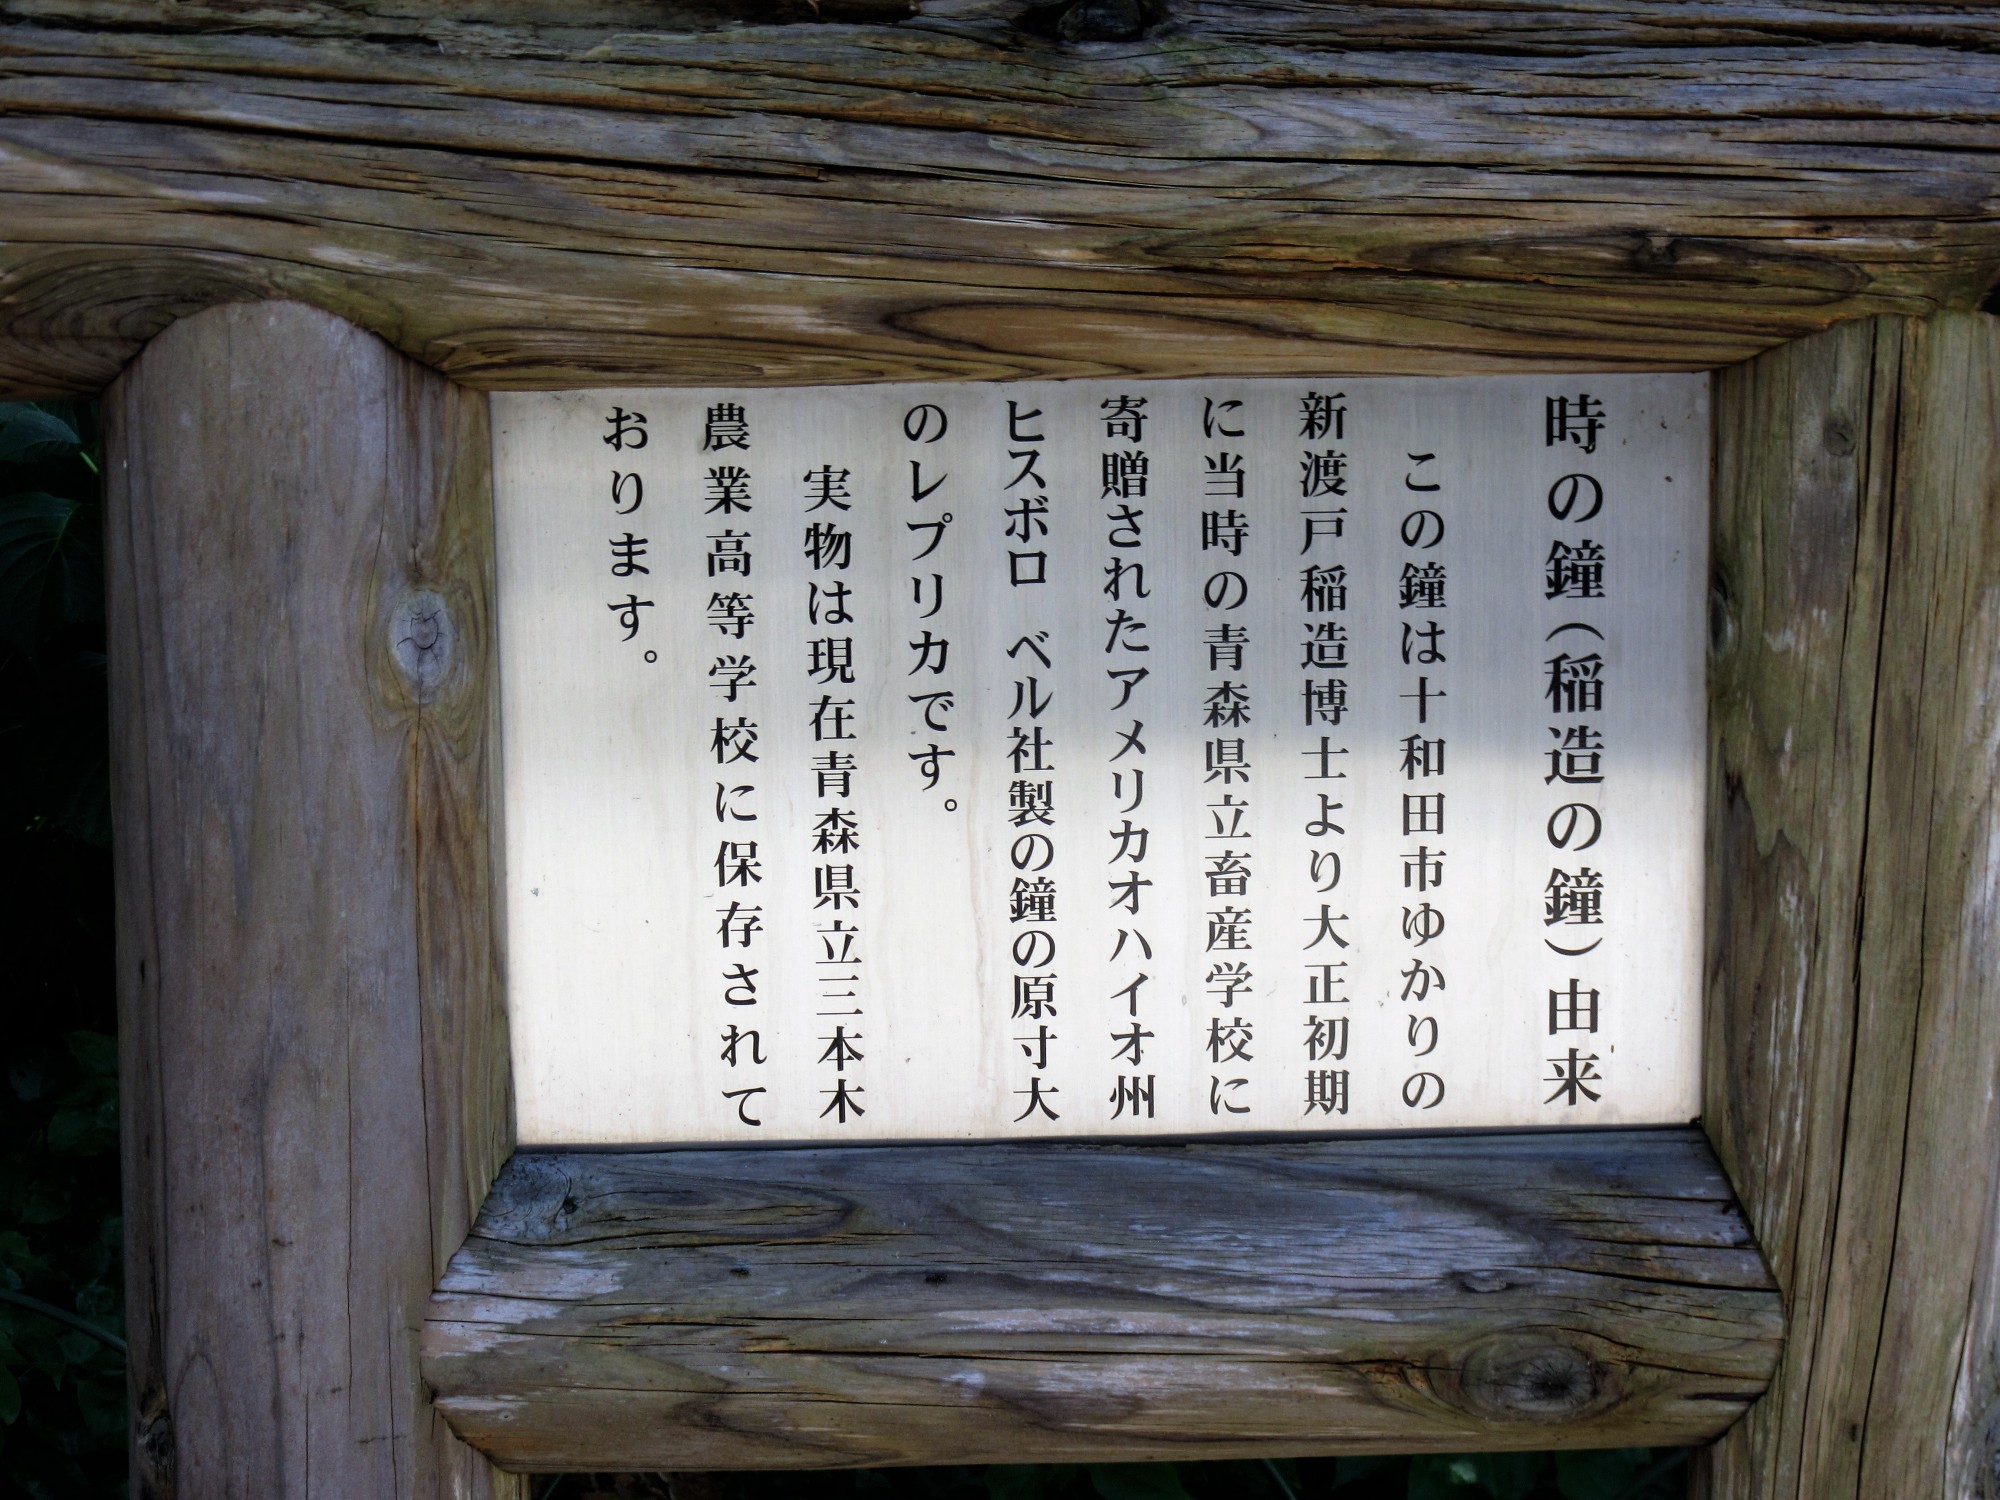 時の鐘（稲造の鐘）由来
この鐘は十和田市ゆかりの
新渡戸稲造博士より大正初期
に当時の青森県立畜産学校に
寄贈されたアメリカオハイオ州
ヒスボロ　ベル社製の鐘の原寸大
のレプリカです。
実物は現在青森県立三本木
農業高等学校に保存されて
おります。